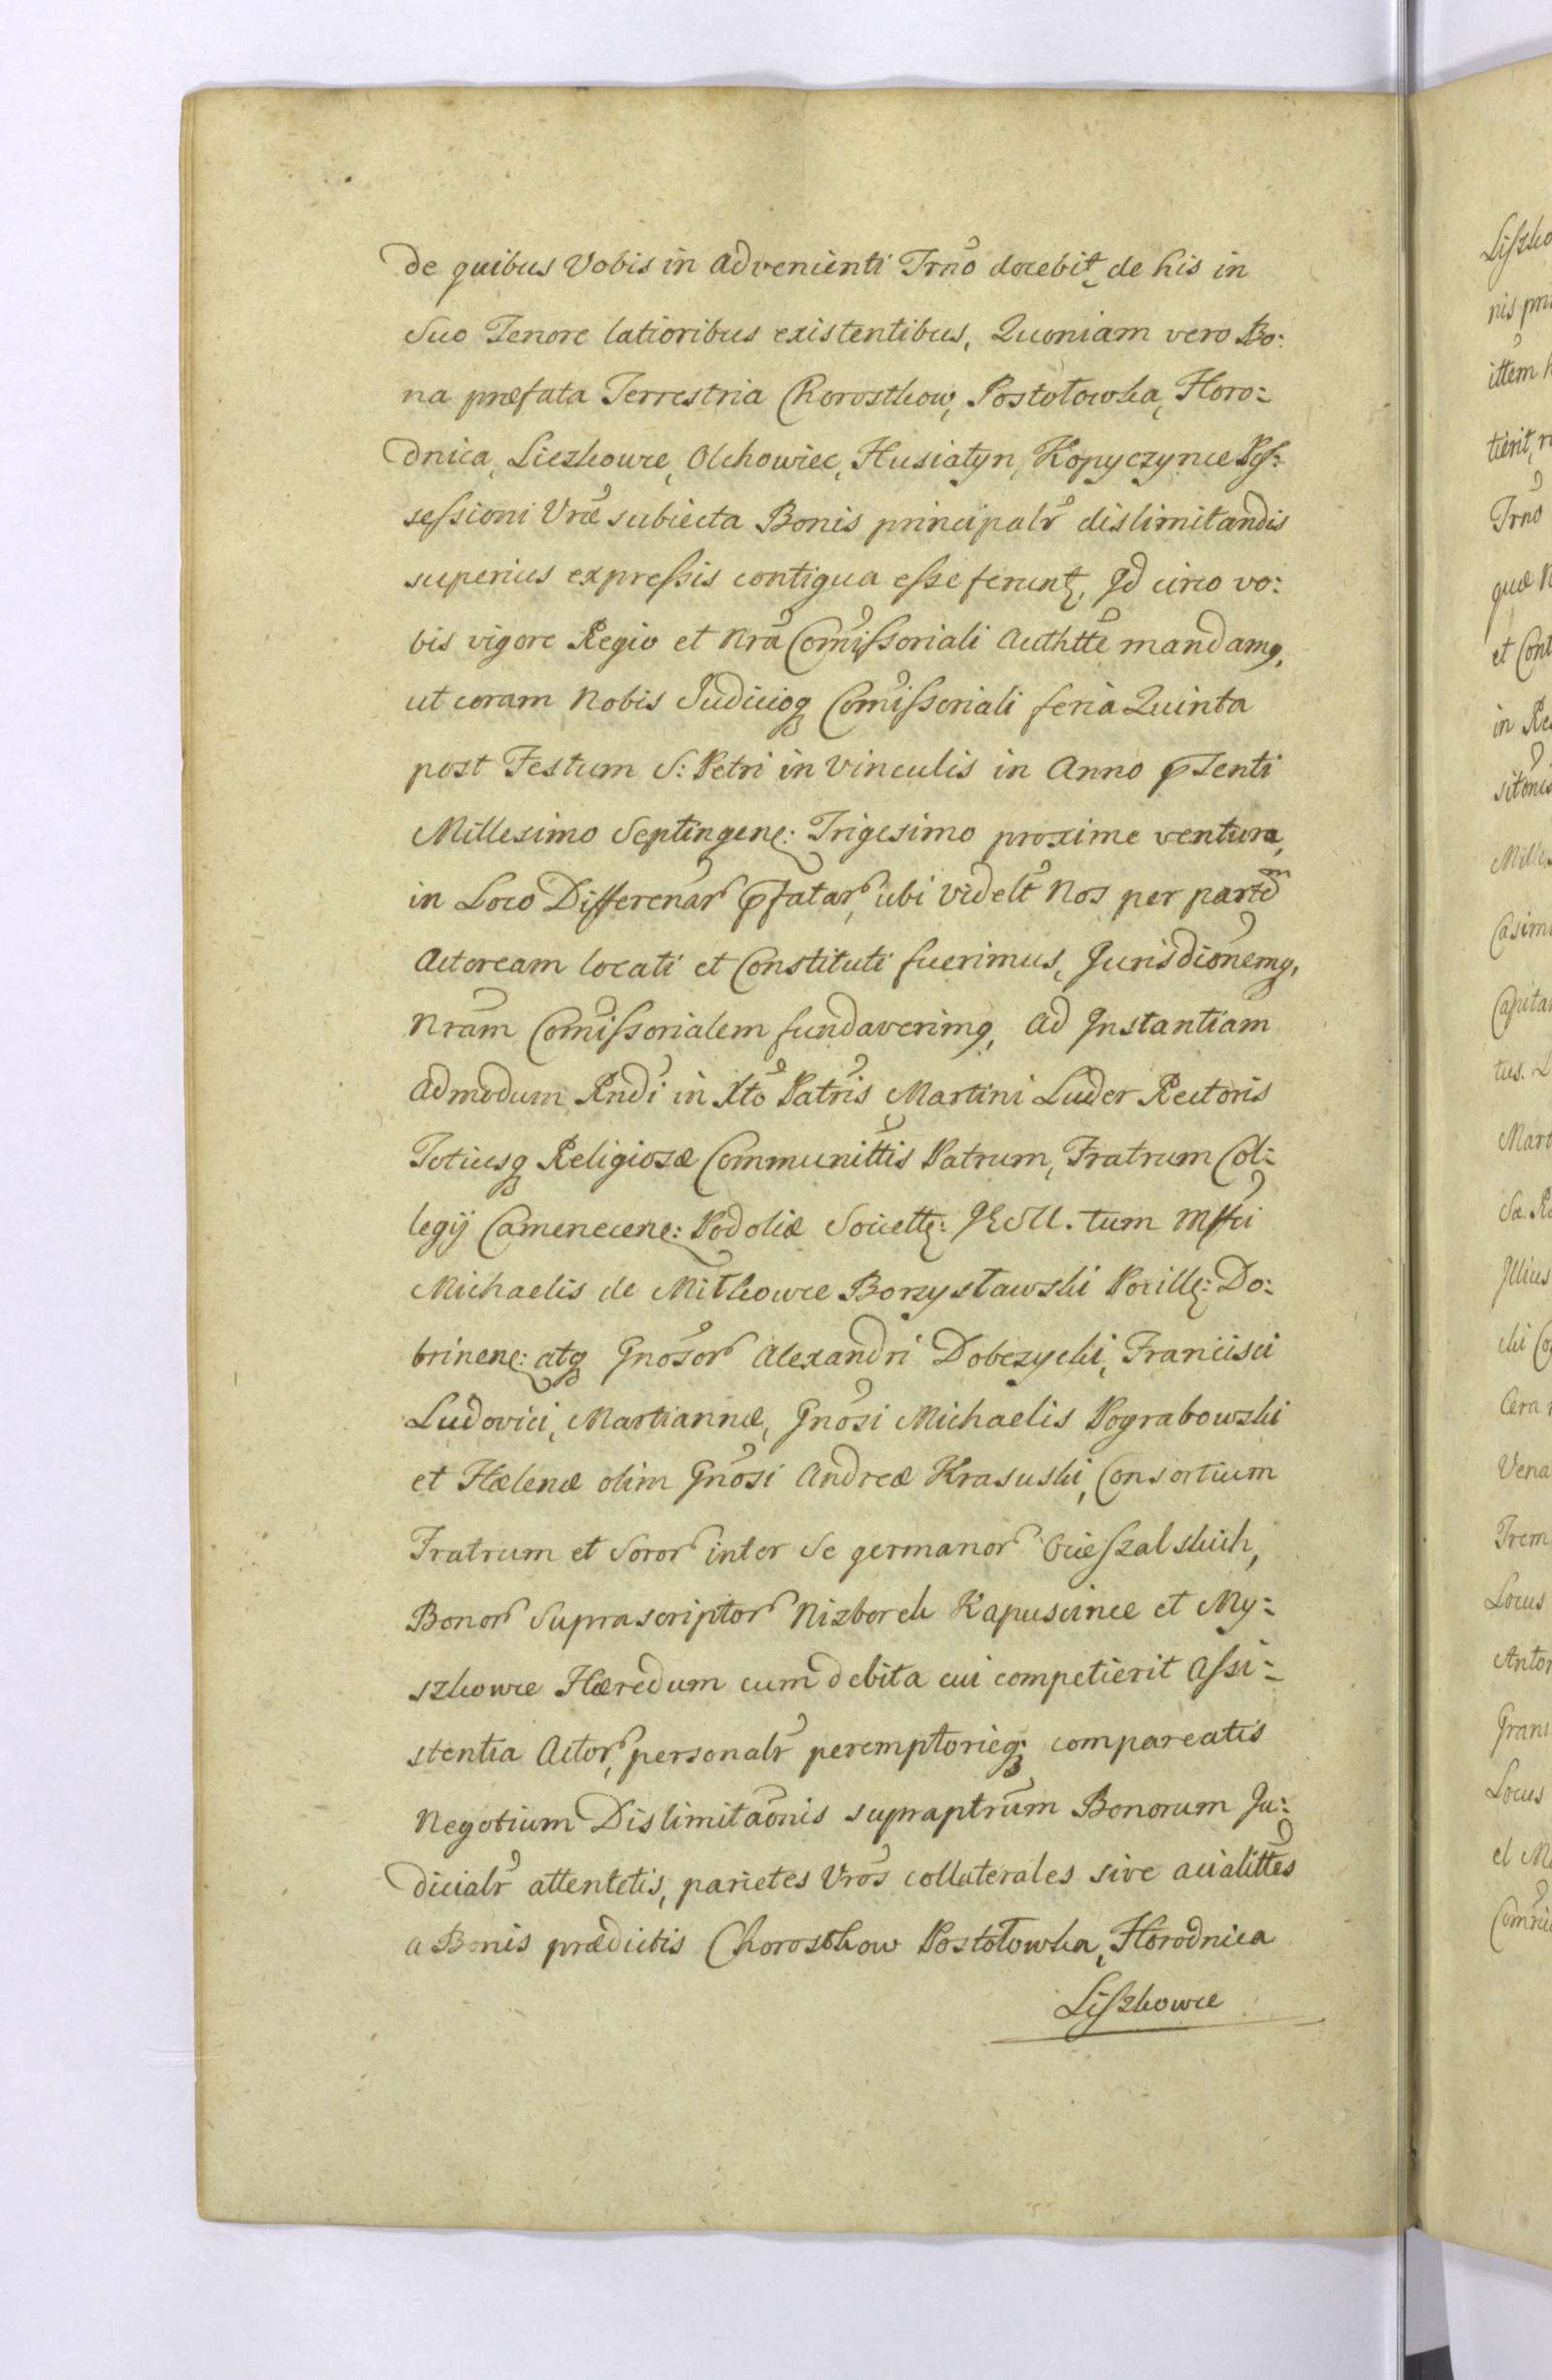 de quibus Vobis in advenienti Trno docebit, de his in
Suo Tenore latioribus existentibus, Quoniam vero Bo:
na præfata Terrestria Chorostkow, Postołowka, Horo:
dnica, Liczkowce, Olchowiec, Husiatyn, Kopyczynce Pos:
sessioni Vræ subiecta Bonis principalr dislimitandis
superius expressis contigua esse ferunt, Id circo vo:
bis vigore Regio et Nra Comissoriali Authtte mandamq,
ut coram Nobis Judicioq Comissoriali feria Quinta
post Festum S: Petri in Vinculis in Anno pTenti
Millesimo Septingene: Trigesimo proxime ventura,
in Loco Differenar pfatar, ubi videlt Nos per partem
Actoream locati et Constituti fuerimus, Jurisdionemq,
Nram Comissorialem fundaverimq, ad Instantiam
admodum Rndi in Xto Patris Martini Luder Rectoris
Totiusq Religiosæ Communittis Patrum, Fratrum Col:
legij Camenecene: Podoliæ Societt: JESU. tum Mffci
Michaelis de Mitkowce Borzysławski Pocille: Do:
brinene: atq Gnosor Alexandri Dobczycki, Francisci
Ludovici, Martiannæ, Gnosi Michaelis Pograbowski
et Hælenæ olim Gnosi Andreæ Krasuski, Consortium
Fratrum et Soror inter Se germanor Cieszalskich,
Bonor Suprascriptor Nizborek Kapuscince et My:
szkowce Hæredum cum debita cui competierit Assi:
stentia Actor, personalr peremptorieq compareatis
Negotium Dislimitaonis supraptrum Bonorum Ju:
dicialr attentetis, parietes Vros collaterales sive acialittes
a Bonis prædictis Chorostkow Postołowka, Horodnica
Liszkowce